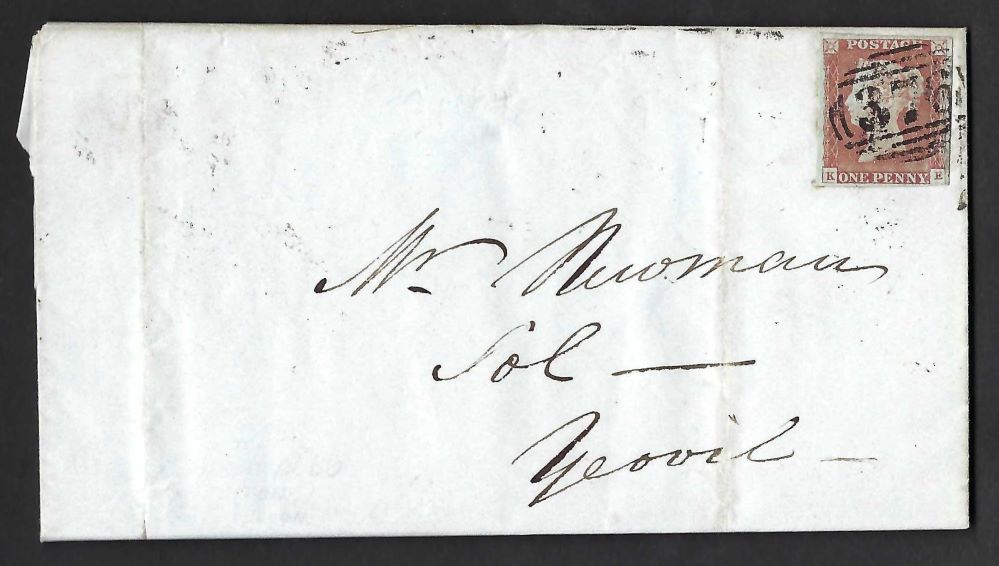 POSTAGE
376
K ONE PENNY. E
Mr Newman
Sol —
Yeovil —